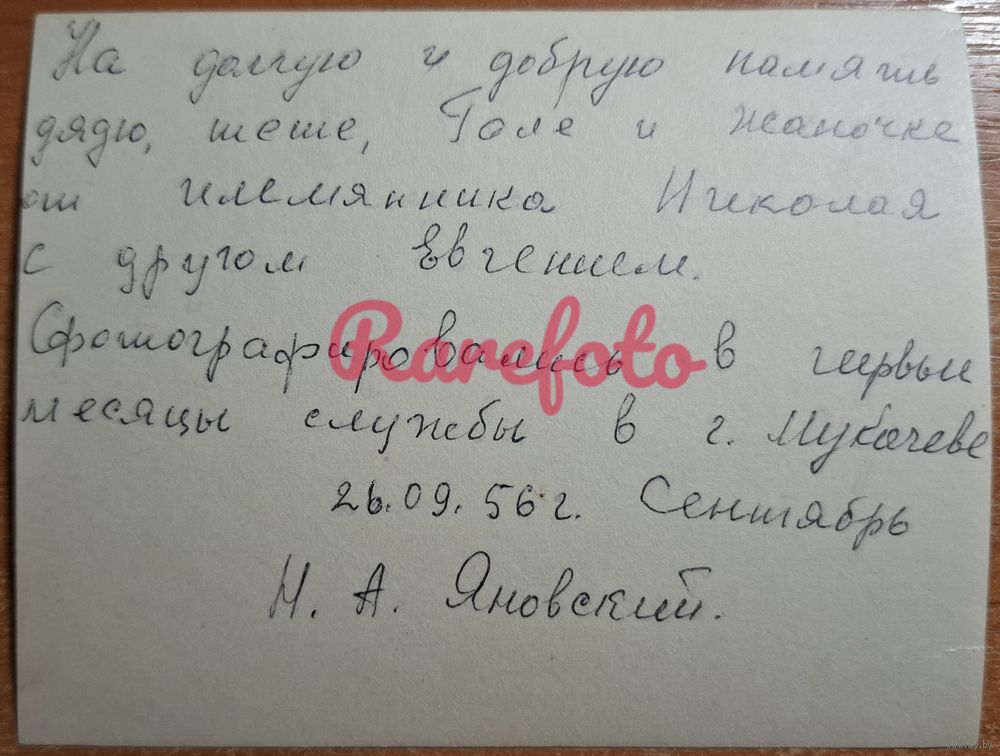 На долгую и добрую память
дядю, тёте, Гале и Жаночке
от племянника Николая
с другом Евгением.
Сфотографировались в первые
месяцы службы в г. Мукачеве
26.09.56 г. Сентябрь
Н. А. Яновский.
Rarefoto